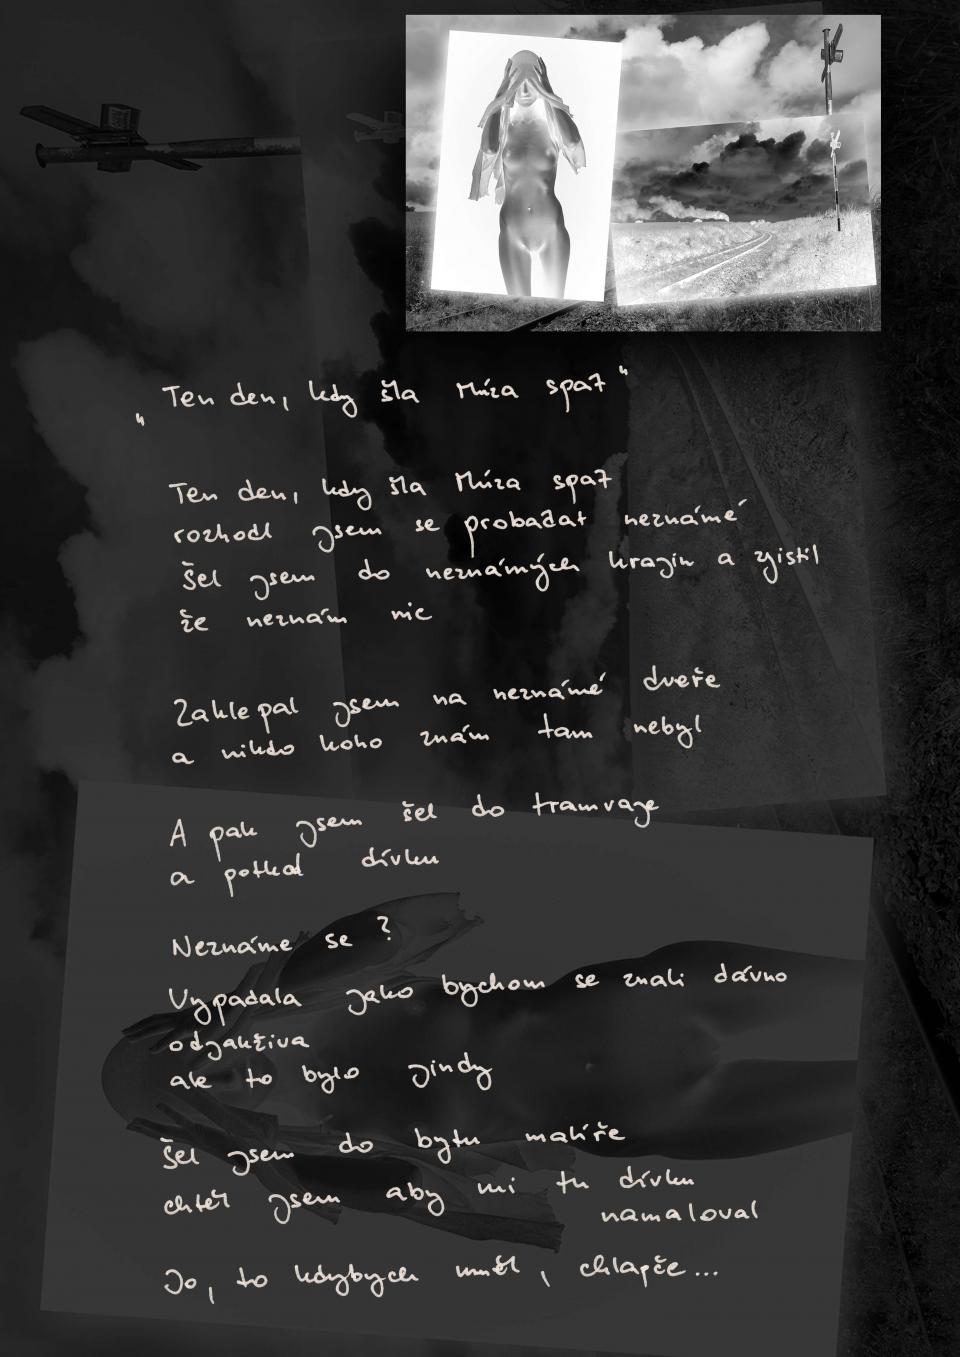 „Ten den, kdy šla Múza spať“
Ten den, kdy šla Múza spať
rozhodl jsem se probádat neznámé
Šel jsem do neznámých krajin a zjistil
že neznám nic
Zaklepal jsem na neznámé dveře
a nikdo koho znám tam nebyl
A pak jsem šel do tramvaje
a potkal dívku
Neznáme se?
Vypadala jako bychom se znali dávno
odjakživa
ale to bylo jindy
Šel jsem do bytu malíře
chtěl jsem aby mi tu dívku
namaloval
Jo, to kdybych uměl, chlapče...